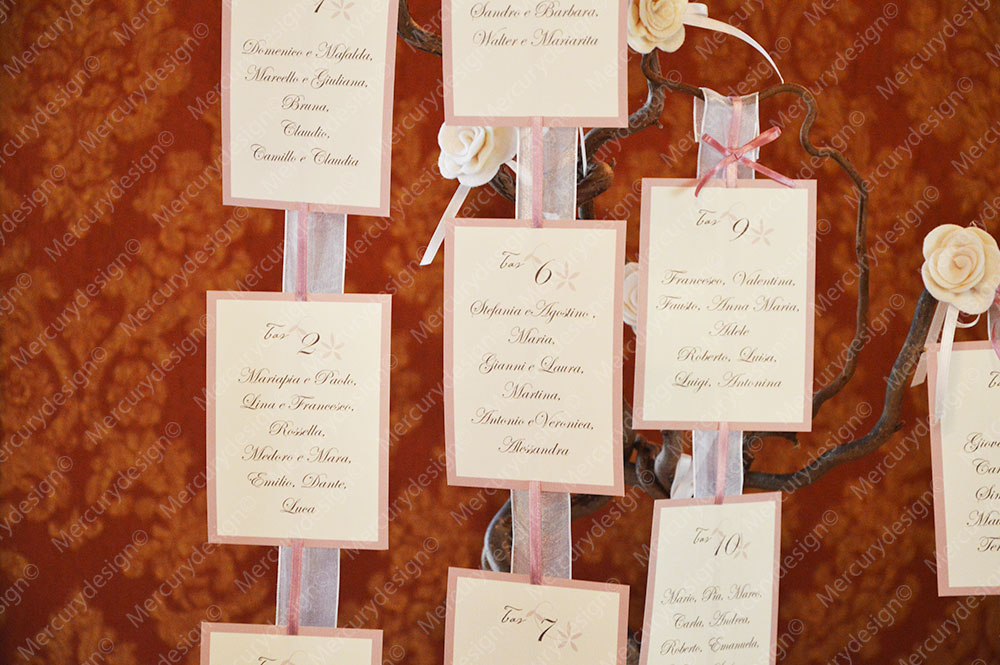 1
Domenico e Mafalda,
Marcello e Giuliana,
Bruna,
Claudio,
Camillo e Claudia
Tav 2
Mariapia e Paolo,
Lina e Francesco,
Rossella,
Medoro e Mara,
Emilio, Dante,
Luca
Tav
Sandro e Barbara,
Walter e Mariarita
Tav 6
Stefania e Agostino ,
Maria,
Gianni e Laura,
Martina,
Antonio e Veronica,
Alessandra
Tav 7
Tav 9
Francesco, Valentina,
Fausto, Anna Maria,
Adele
Roberto, Luisa,
Luigi, Antonina
Tav 10
Mario, Pia, Marco,
Carla, Andrea,
Roberto, Emanuela,
Giov
Ca
Si
Ma
Ter
Mercurydesign©